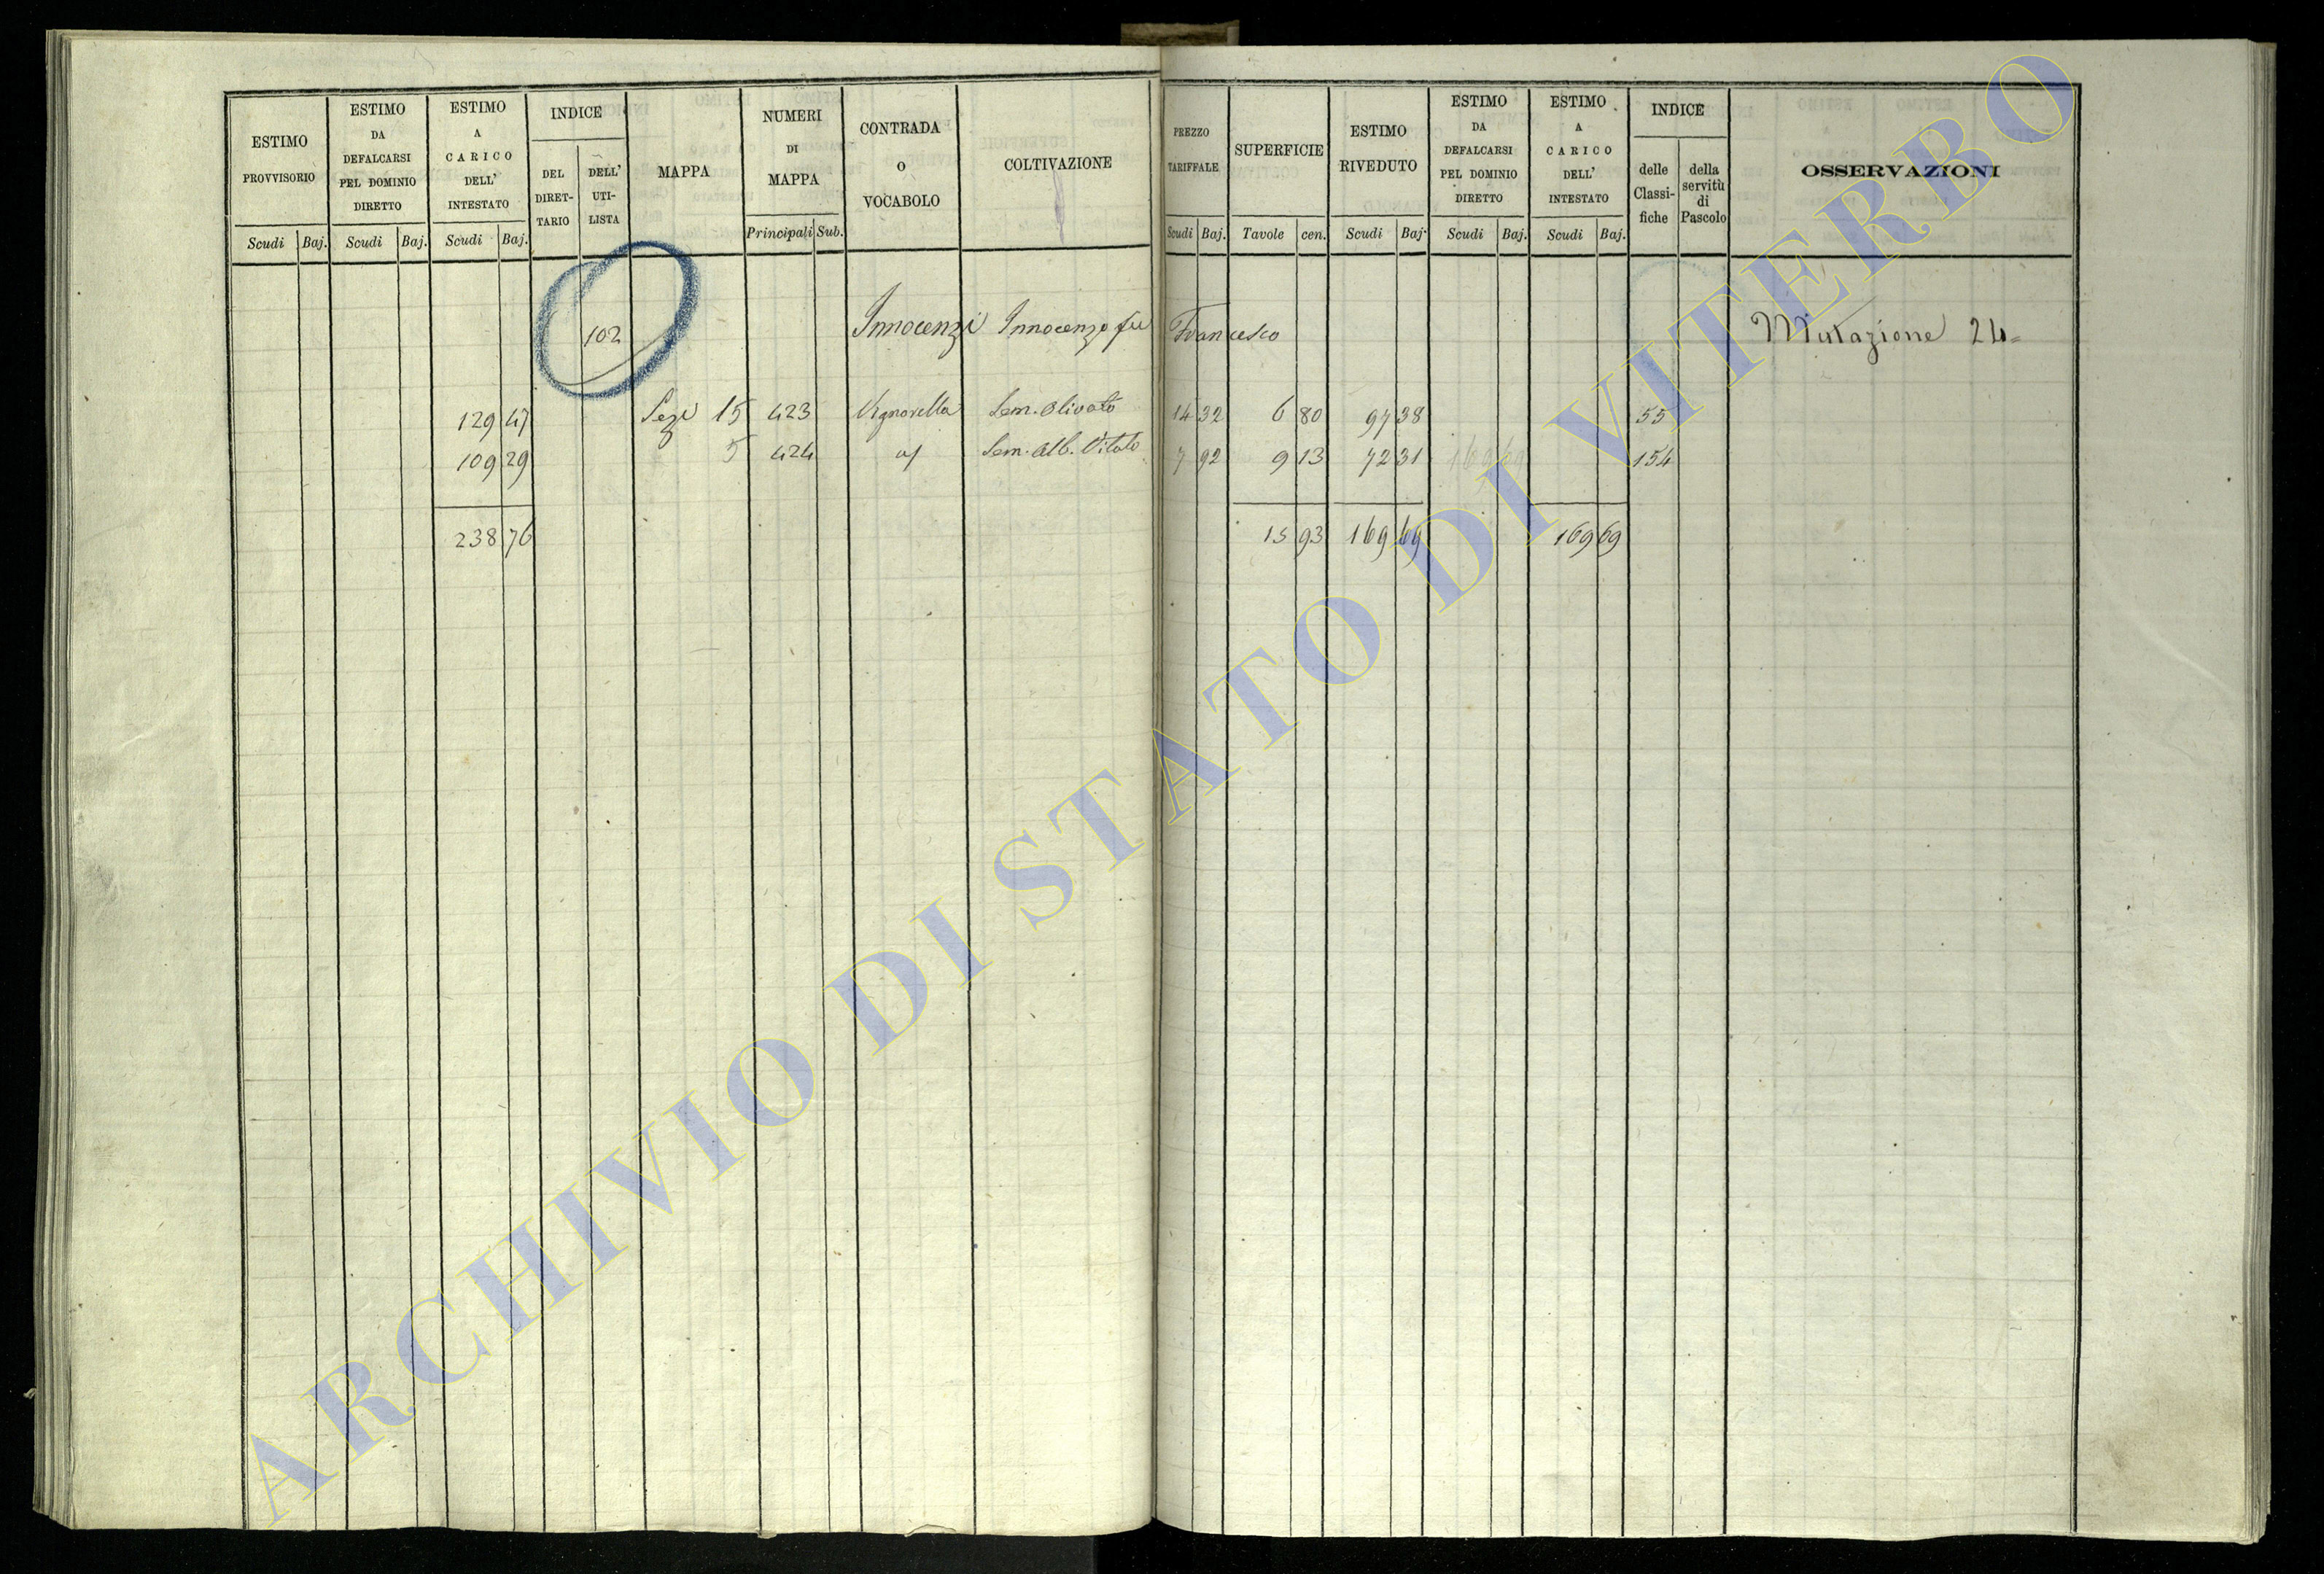 ESTIMO PROVVISORIO
Scudi Baj.
ESTIMO DA DEFALCARSI PEL DOMINIO DIRETTO
Scudi Baj.
ESTIMO A CARICO DELL' INTESTATO
Scudi Baj.
INDICE
DEL DIRET- TARIO
DELL' UTI- LISTA
MAPPA
NUMERI DI MAPPA
Principali Sub.
CONTRADA O VOCABOLO
COLTIVAZIONE
PREZZO TARIFFALE
Scudi Baj.
SUPERFICIE
Tavole cen.
ESTIMO RIVEDUTO
Scudi Baj.
ESTIMO DA DEFALCARSI PEL DOMINIO DIRETTO
Scudi Baj.
ESTIMO A CARICO DELL' INTESTATO
Scudi Baj.
INDICE
delle Classi- fiche
della servitù di Pascolo
OSSERVAZIONI
102 Innocenzi Innocenzo fu Francesco Mutazione 24
129 47 Sezi 15 423 Vignarella Sem. Olivato 14 32 6 80 97 38 55
109 29 5 424 Sem. Alb. Vitato 7 92 9 13 72 31 169 69 154
238 76 15 93 169 69 169 69
ARCHIVIO DI STATO DI VITERBO